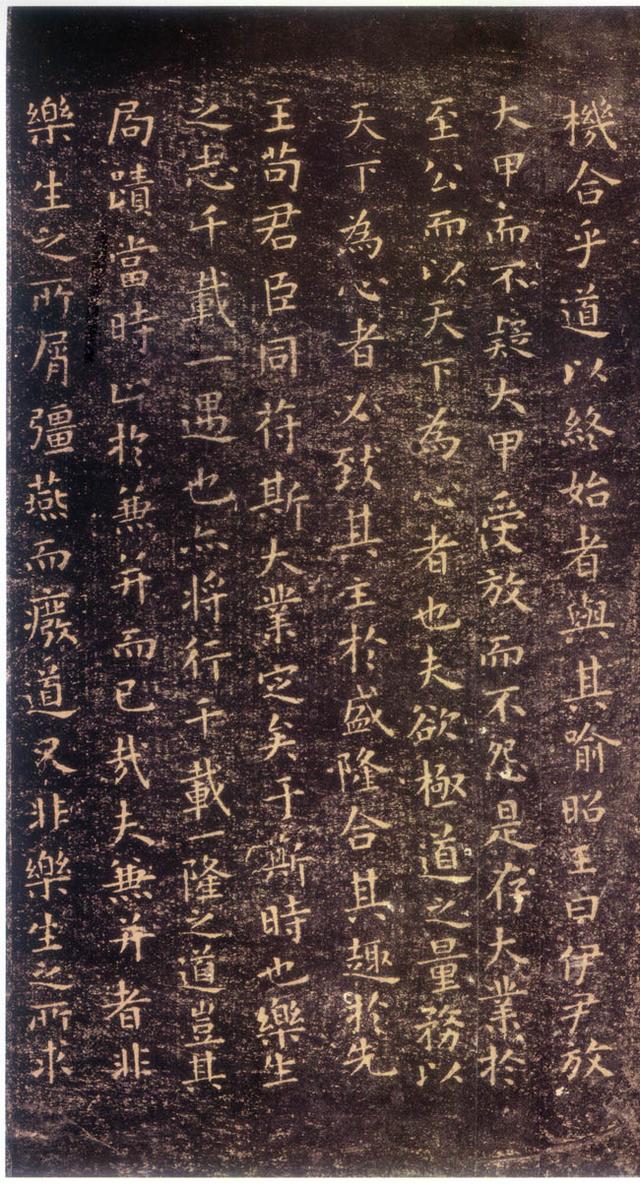 機合乎道以終始者與其喻昭王曰伊尹放
大甲而不疑大甲受放而不怨是存大業於
至公而以天下為心者也夫欲極道之量務以
天下為心者必致其主於盛隆合其趣於先
王苟君臣同符斯大業定矣于斯時也樂生
之志千載一遇也亦將行千載一隆之道豈其
局蹟當時止於兼并而已哉夫兼并者非
樂生之所屑彊燕而廢道又非樂生之所求